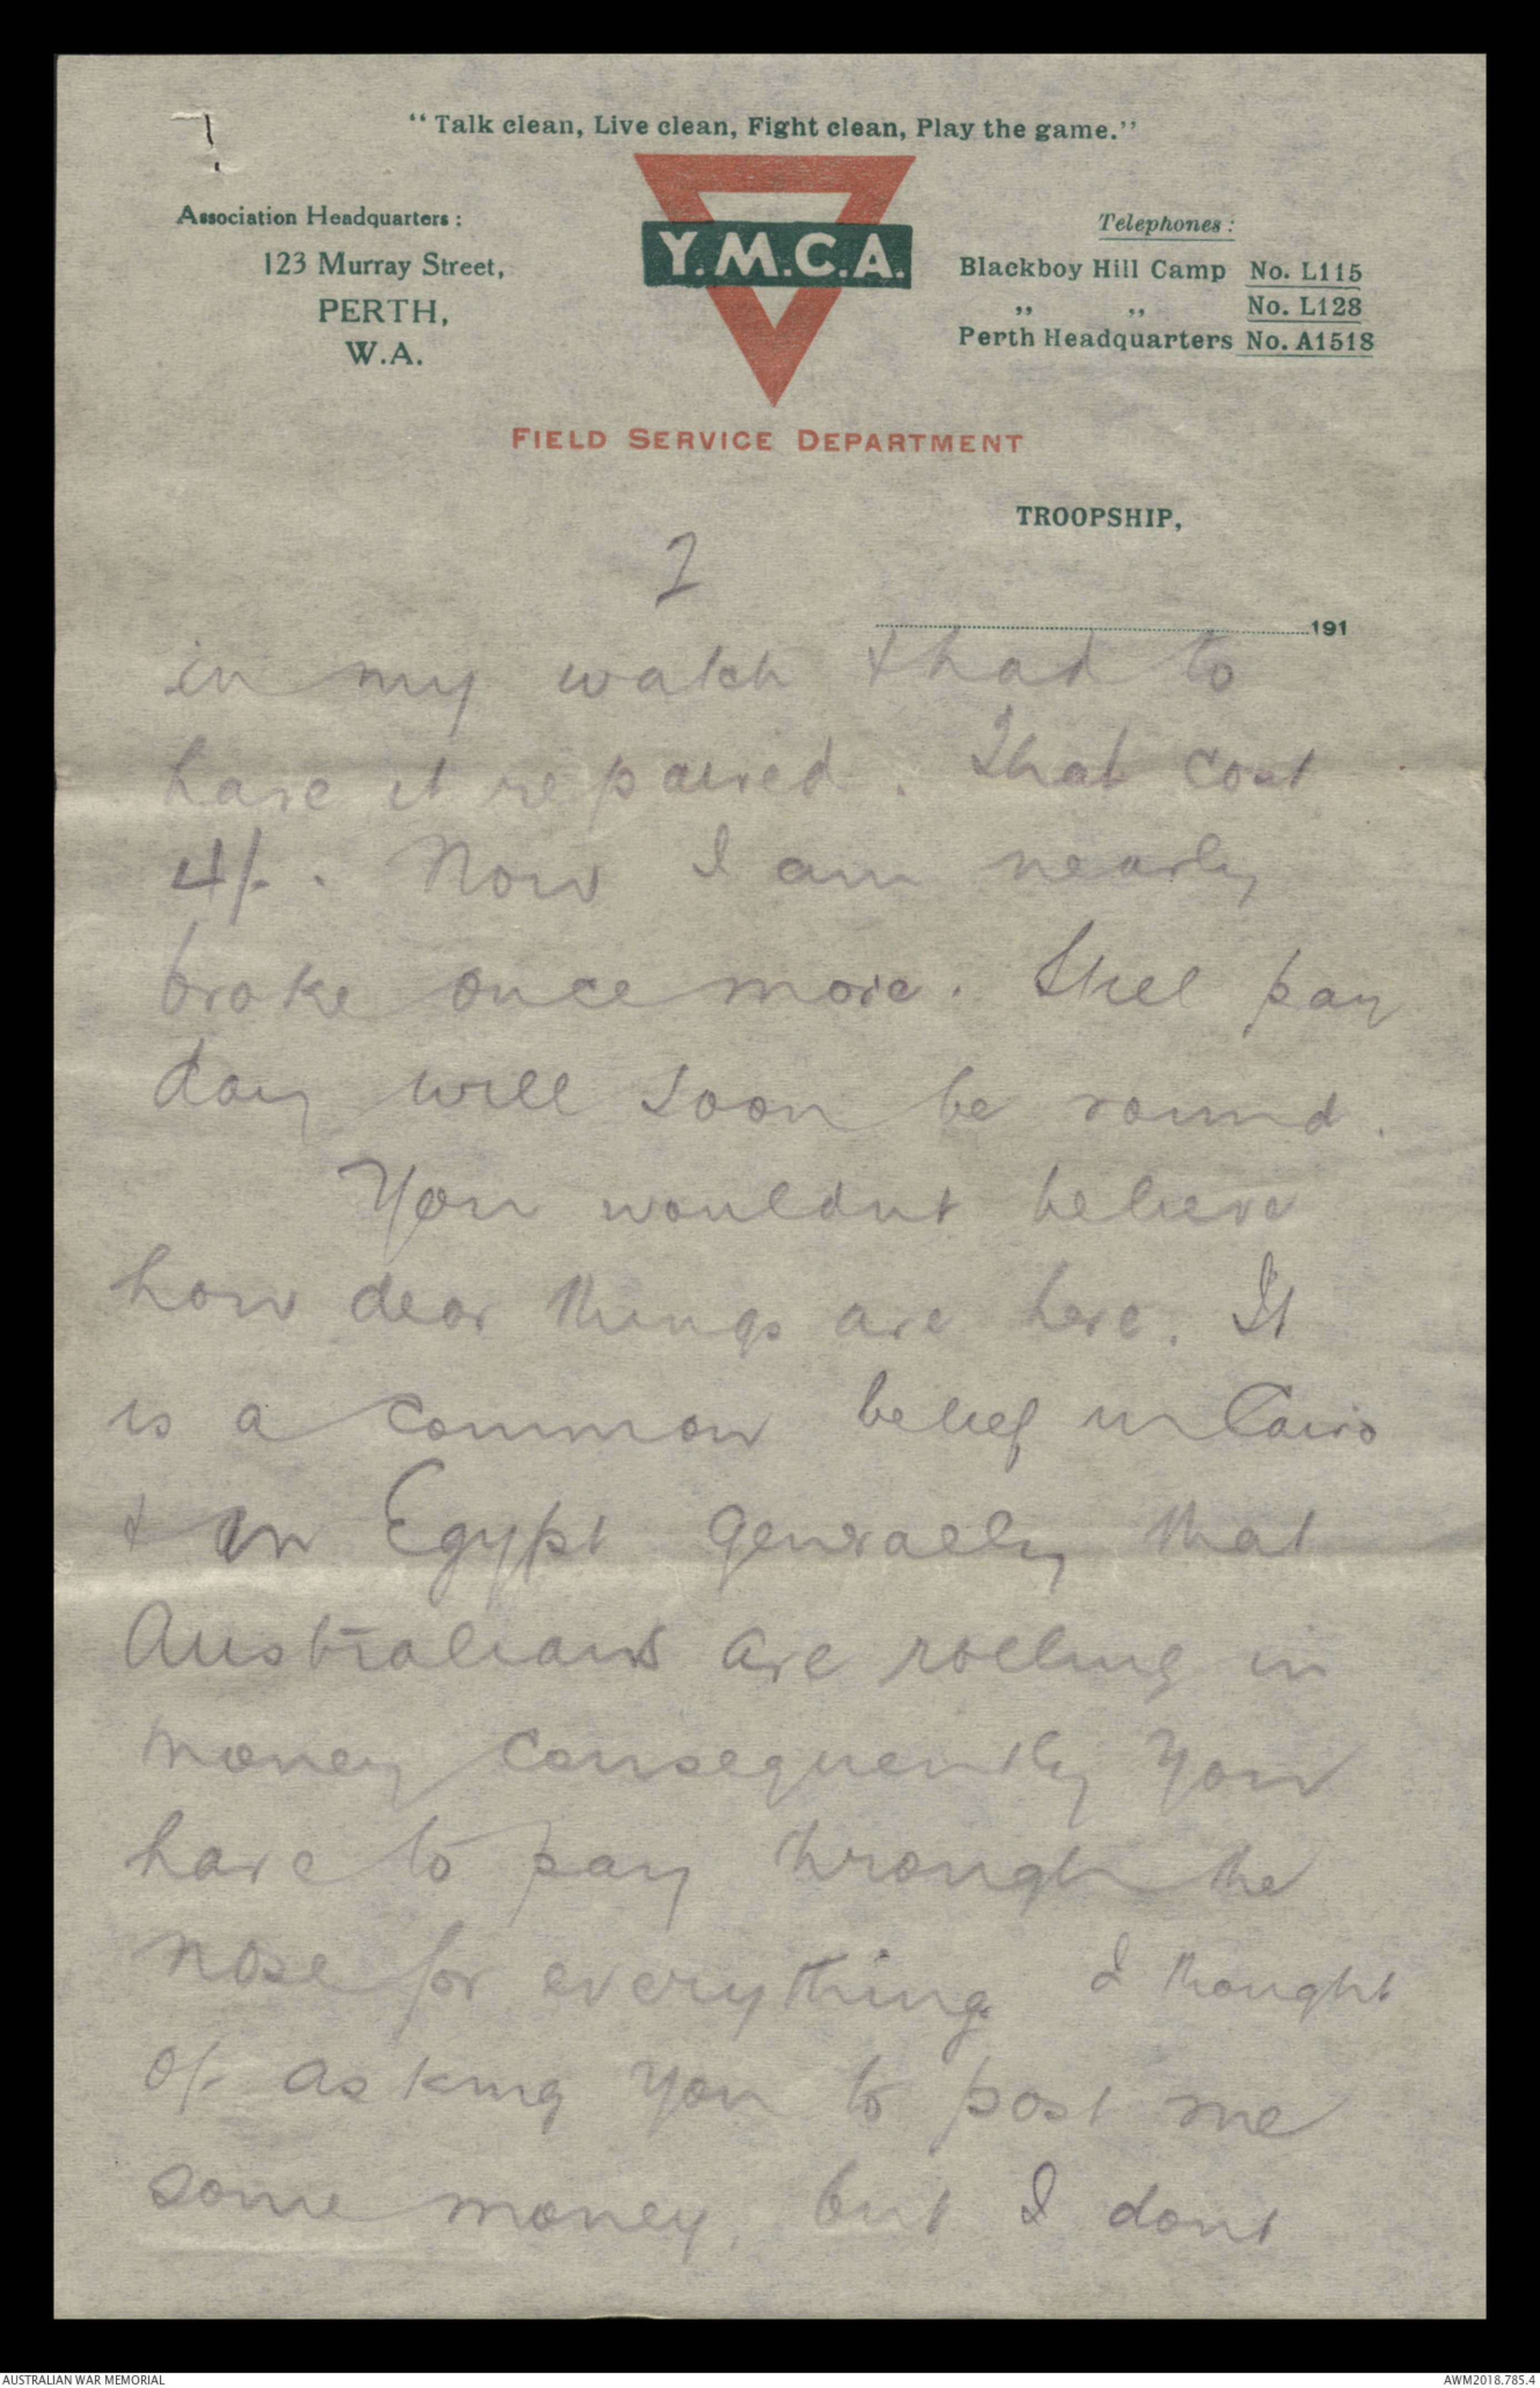 "Talk clean, Live clean, Fight clean, Play the game."
Association Headquarters:
123 Murray Street,
PERTH,
W.A.
Y.M.C.A.
Telephones:
Blackboy Hill Camp No. L115
" " No. L128
Perth Headquarters No. A1518
FIELD SERVICE DEPARTMENT
TROOPSHIP,
2
191
in my watch & had to
have it repaired. That cost
4/-. Now I am nearly
broke once more. Still pay
day will soon be round.
You wouldnt believe
how dear things are here. It
is a common belief in Cairo
& in Egypt generally that
Australians are rolling in
money consequently you
have to pay through the
nose for everything. I thought
of asking you to post me
some money, but I dont
AUSTRALIAN WAR MEMORIAL
AWM2018.785.4